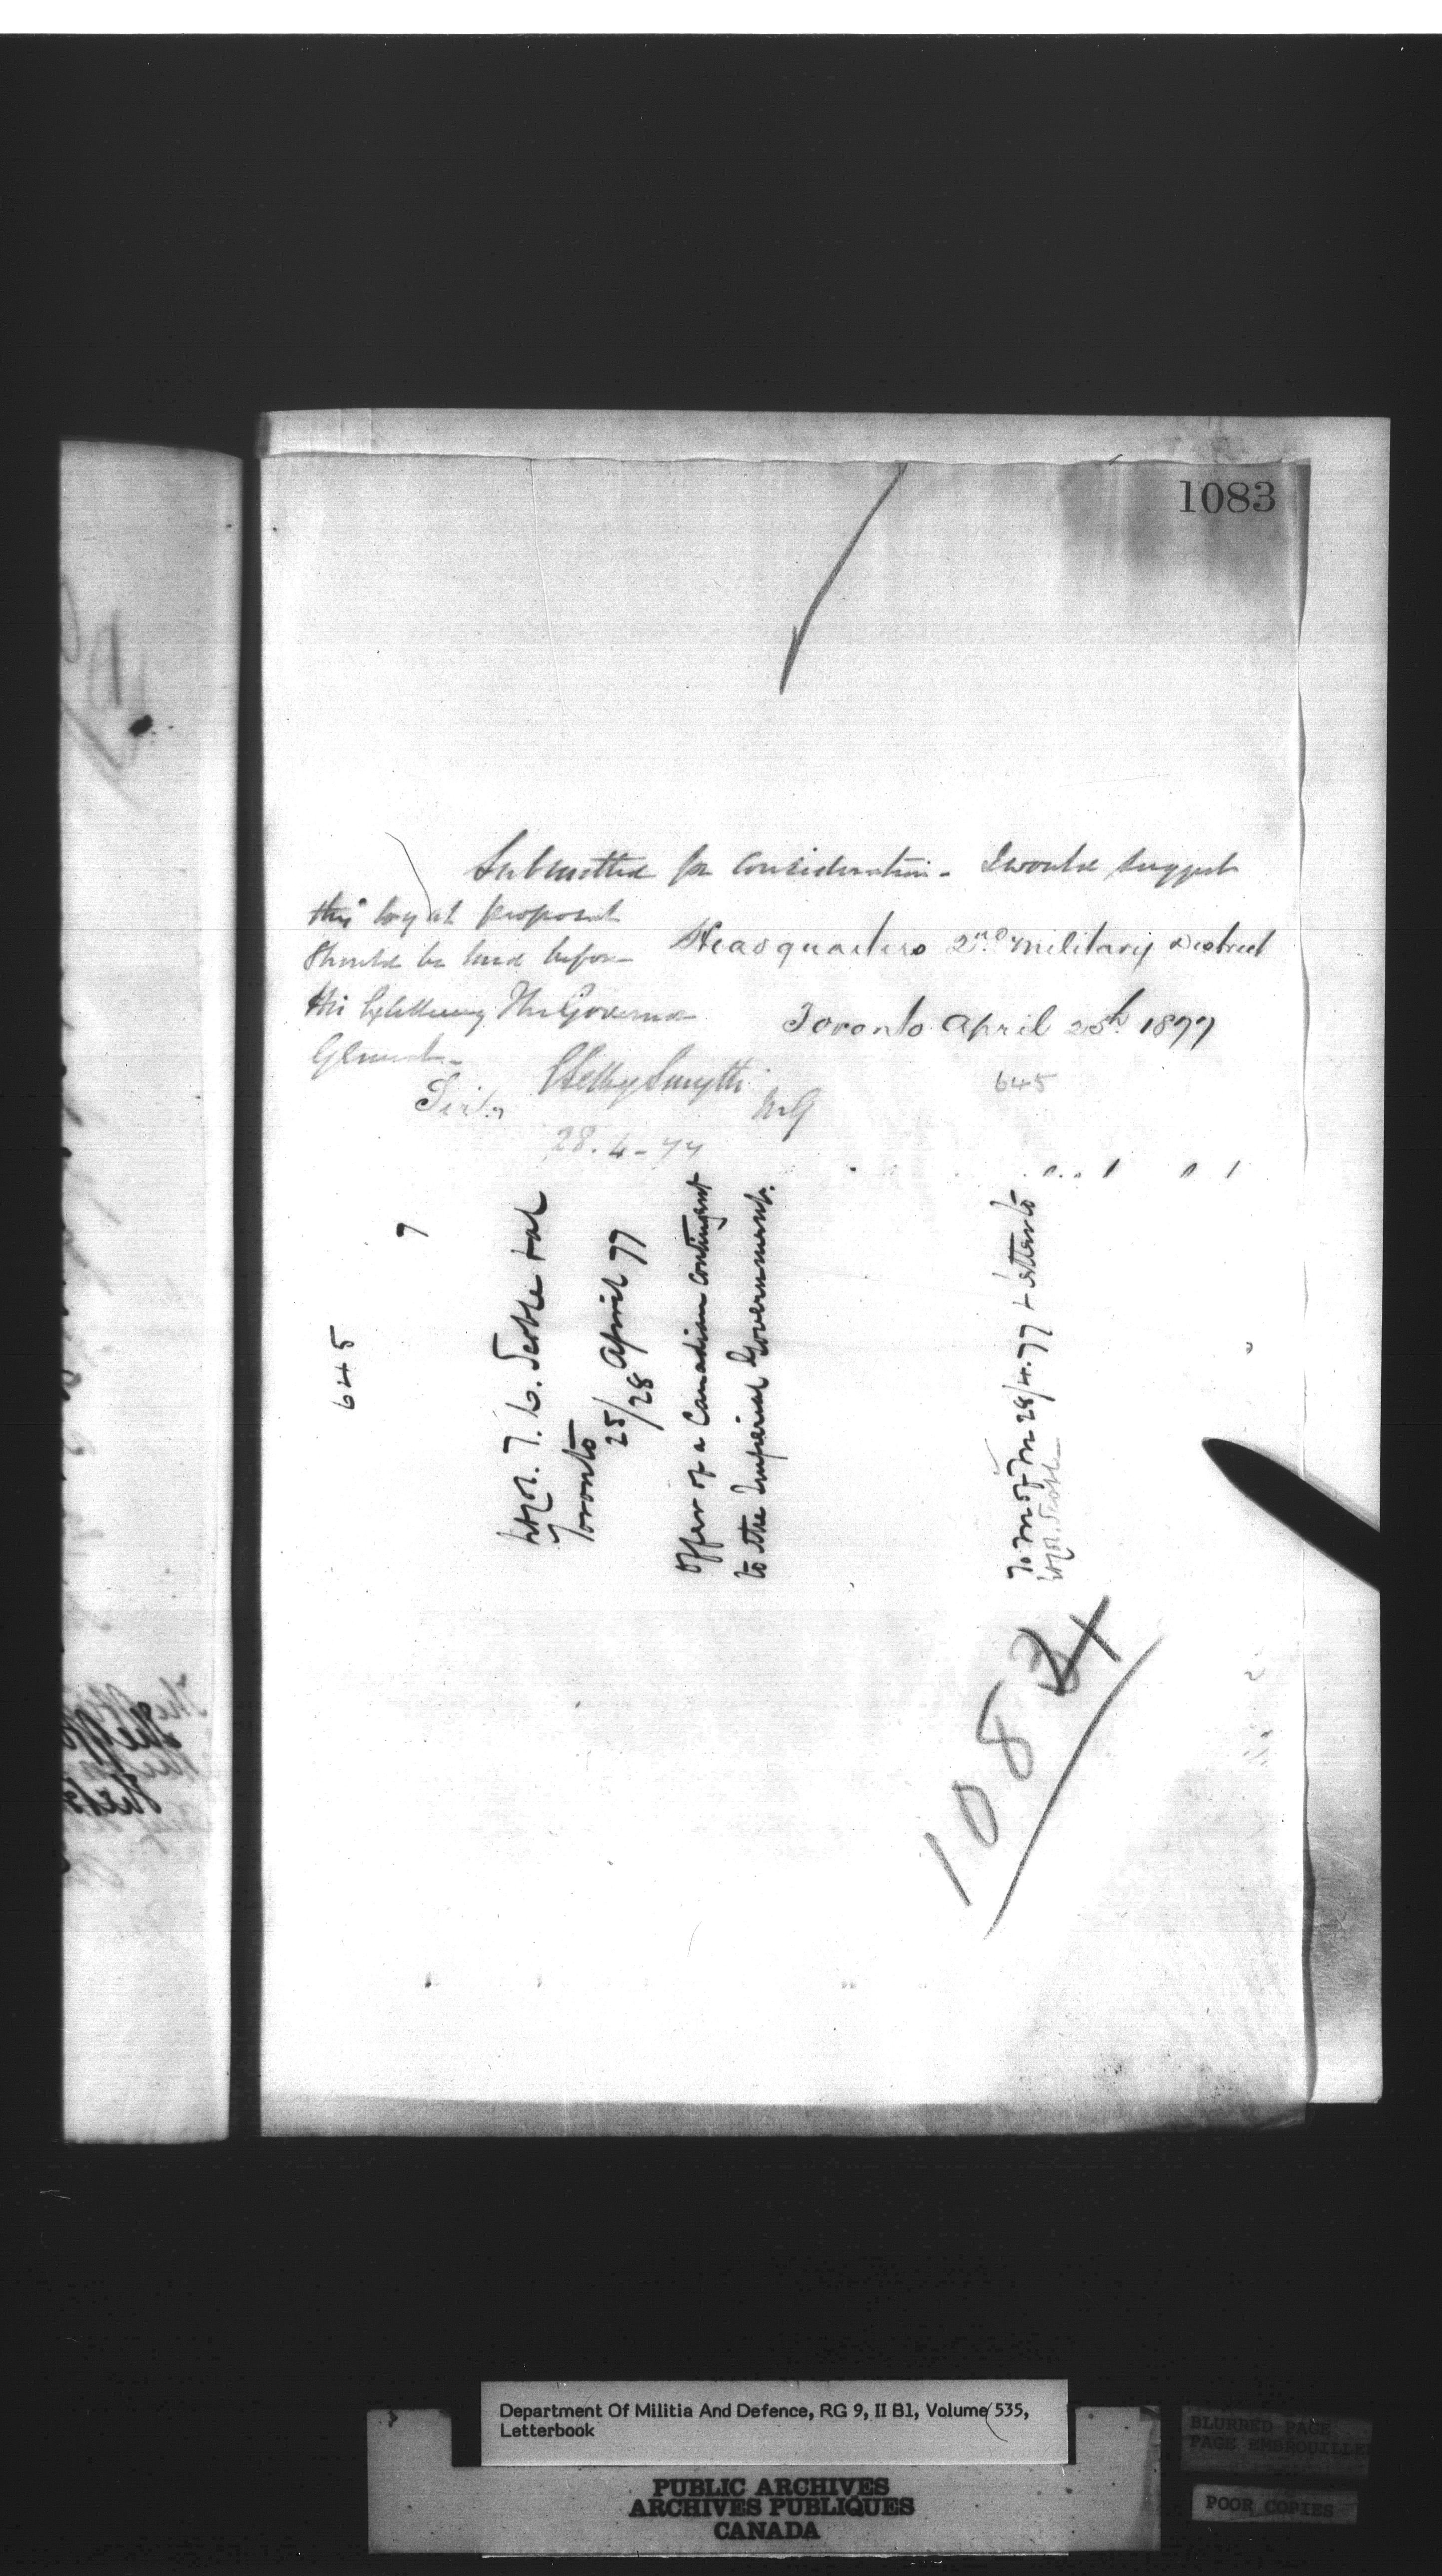 1083
Submitted for consideration - I would suggest
this loyal proposal
should be laid before
His Excellency The Governor
General -
Headquarters 2nd Military District
Toronto April 25th 1877
645
Sir,
E Selby Smyth
M G
28.4-77
645
7
Lt Col. T. C. Scoble
Toronto
25/28 April 77
Offer of a Canadian Contingent
to the Imperial Government.
To M of M 28/4.77 + Letter to
Lt Col. Scoble
108
Department Of Militia And Defence, RG 9, II B1, Volume 535,
Letterbook
PUBLIC ARCHIVES
ARCHIVES PUBLIQUES
CANADA
BLURRED PAGE
PAGE EMBROUILLEE
POOR COPIES